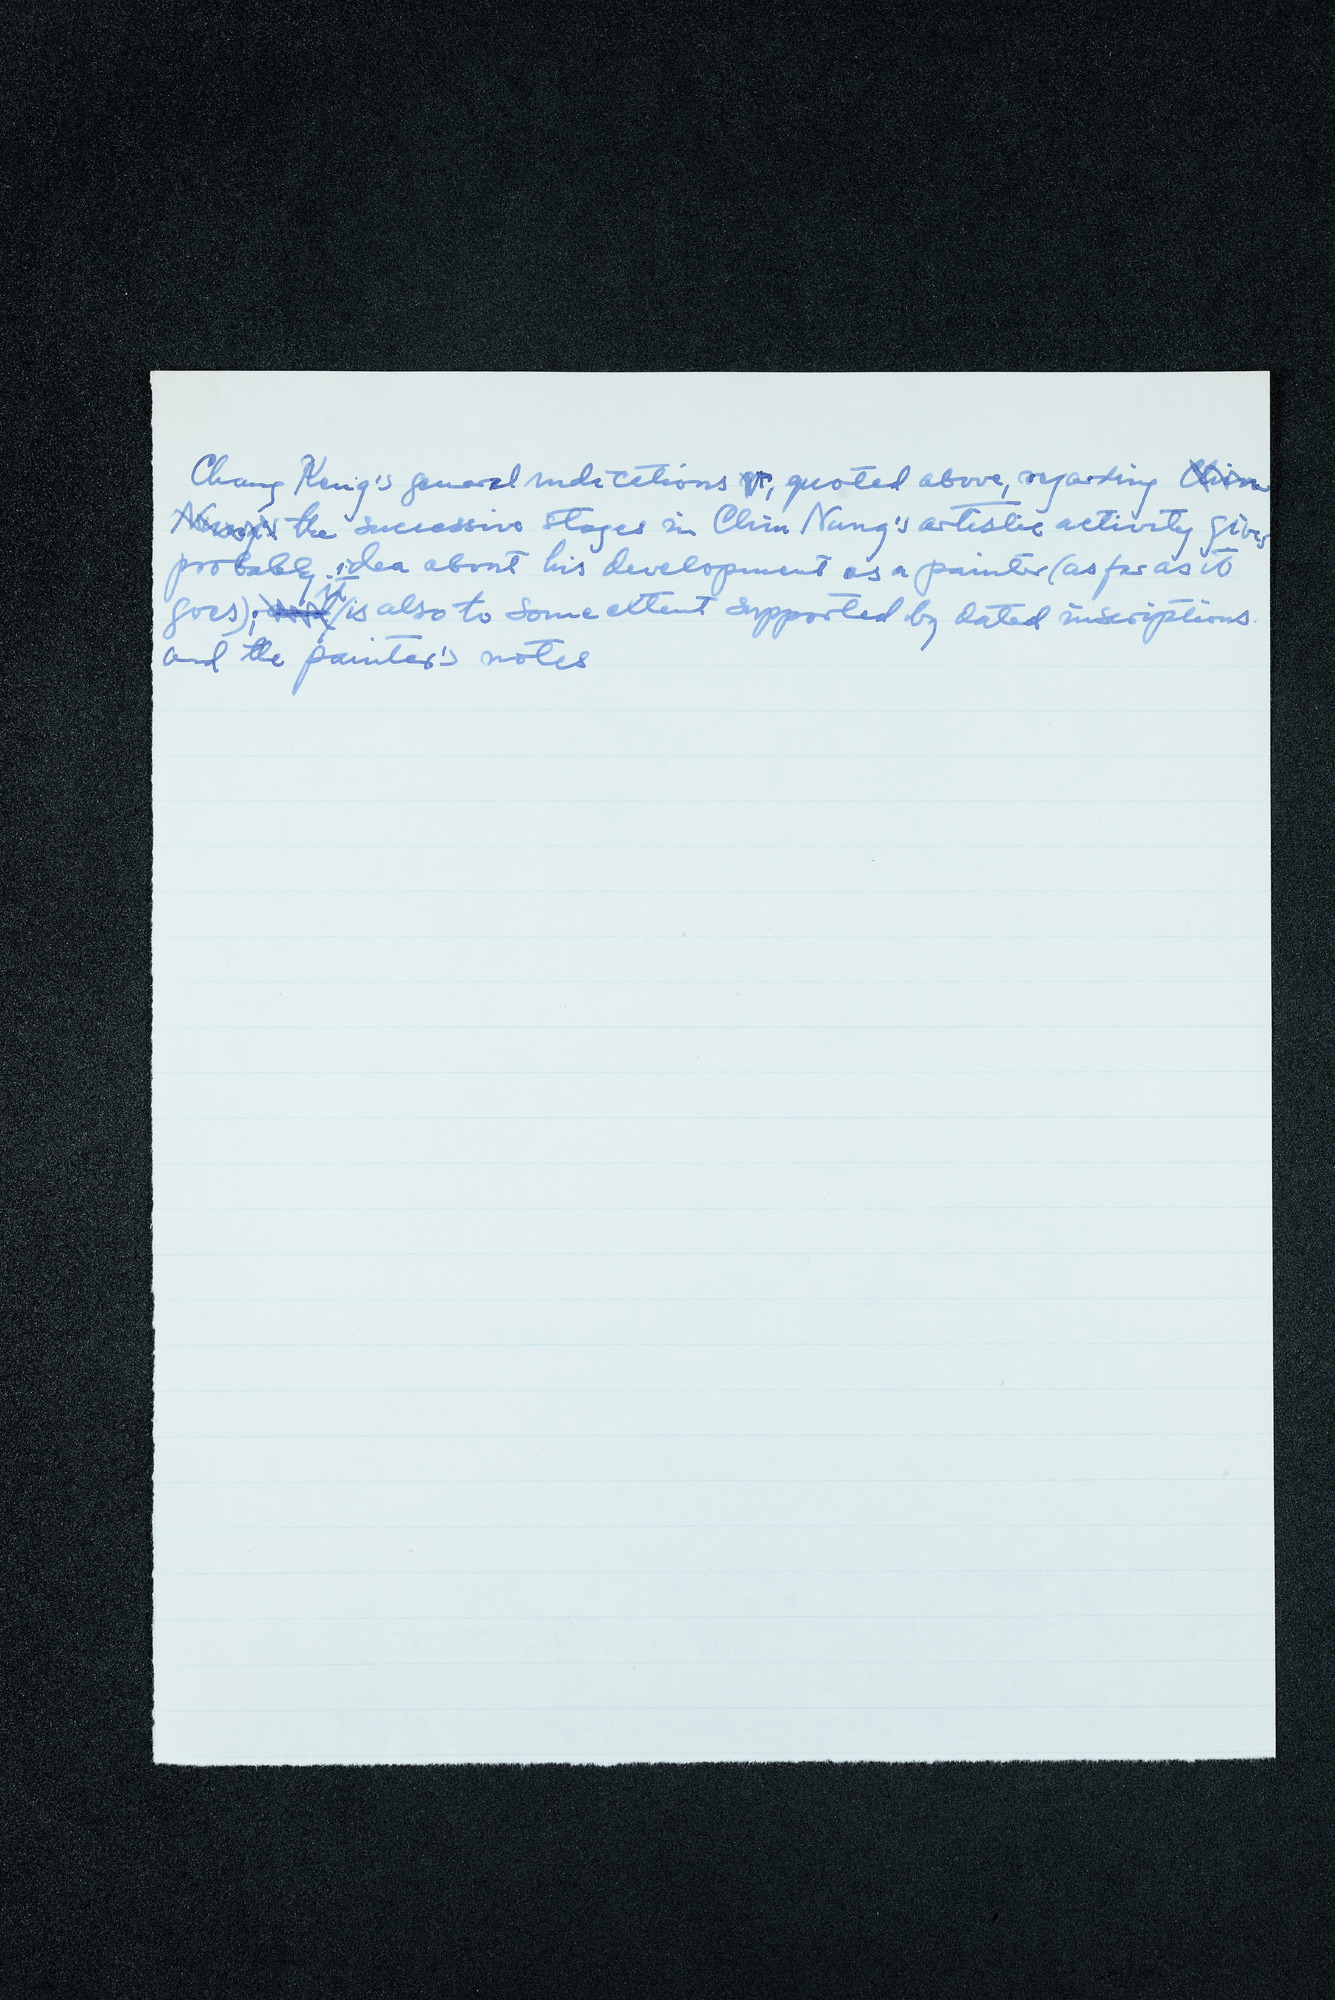 Chang Keng's general indications, quoted above, regarding Chin
Nung's the successive stages in Chin Nung's artistic activity gives
probably idea about his development as a painter (as far as it
goes); it is also to some extent supported by dated inscriptions
and the painter's notes